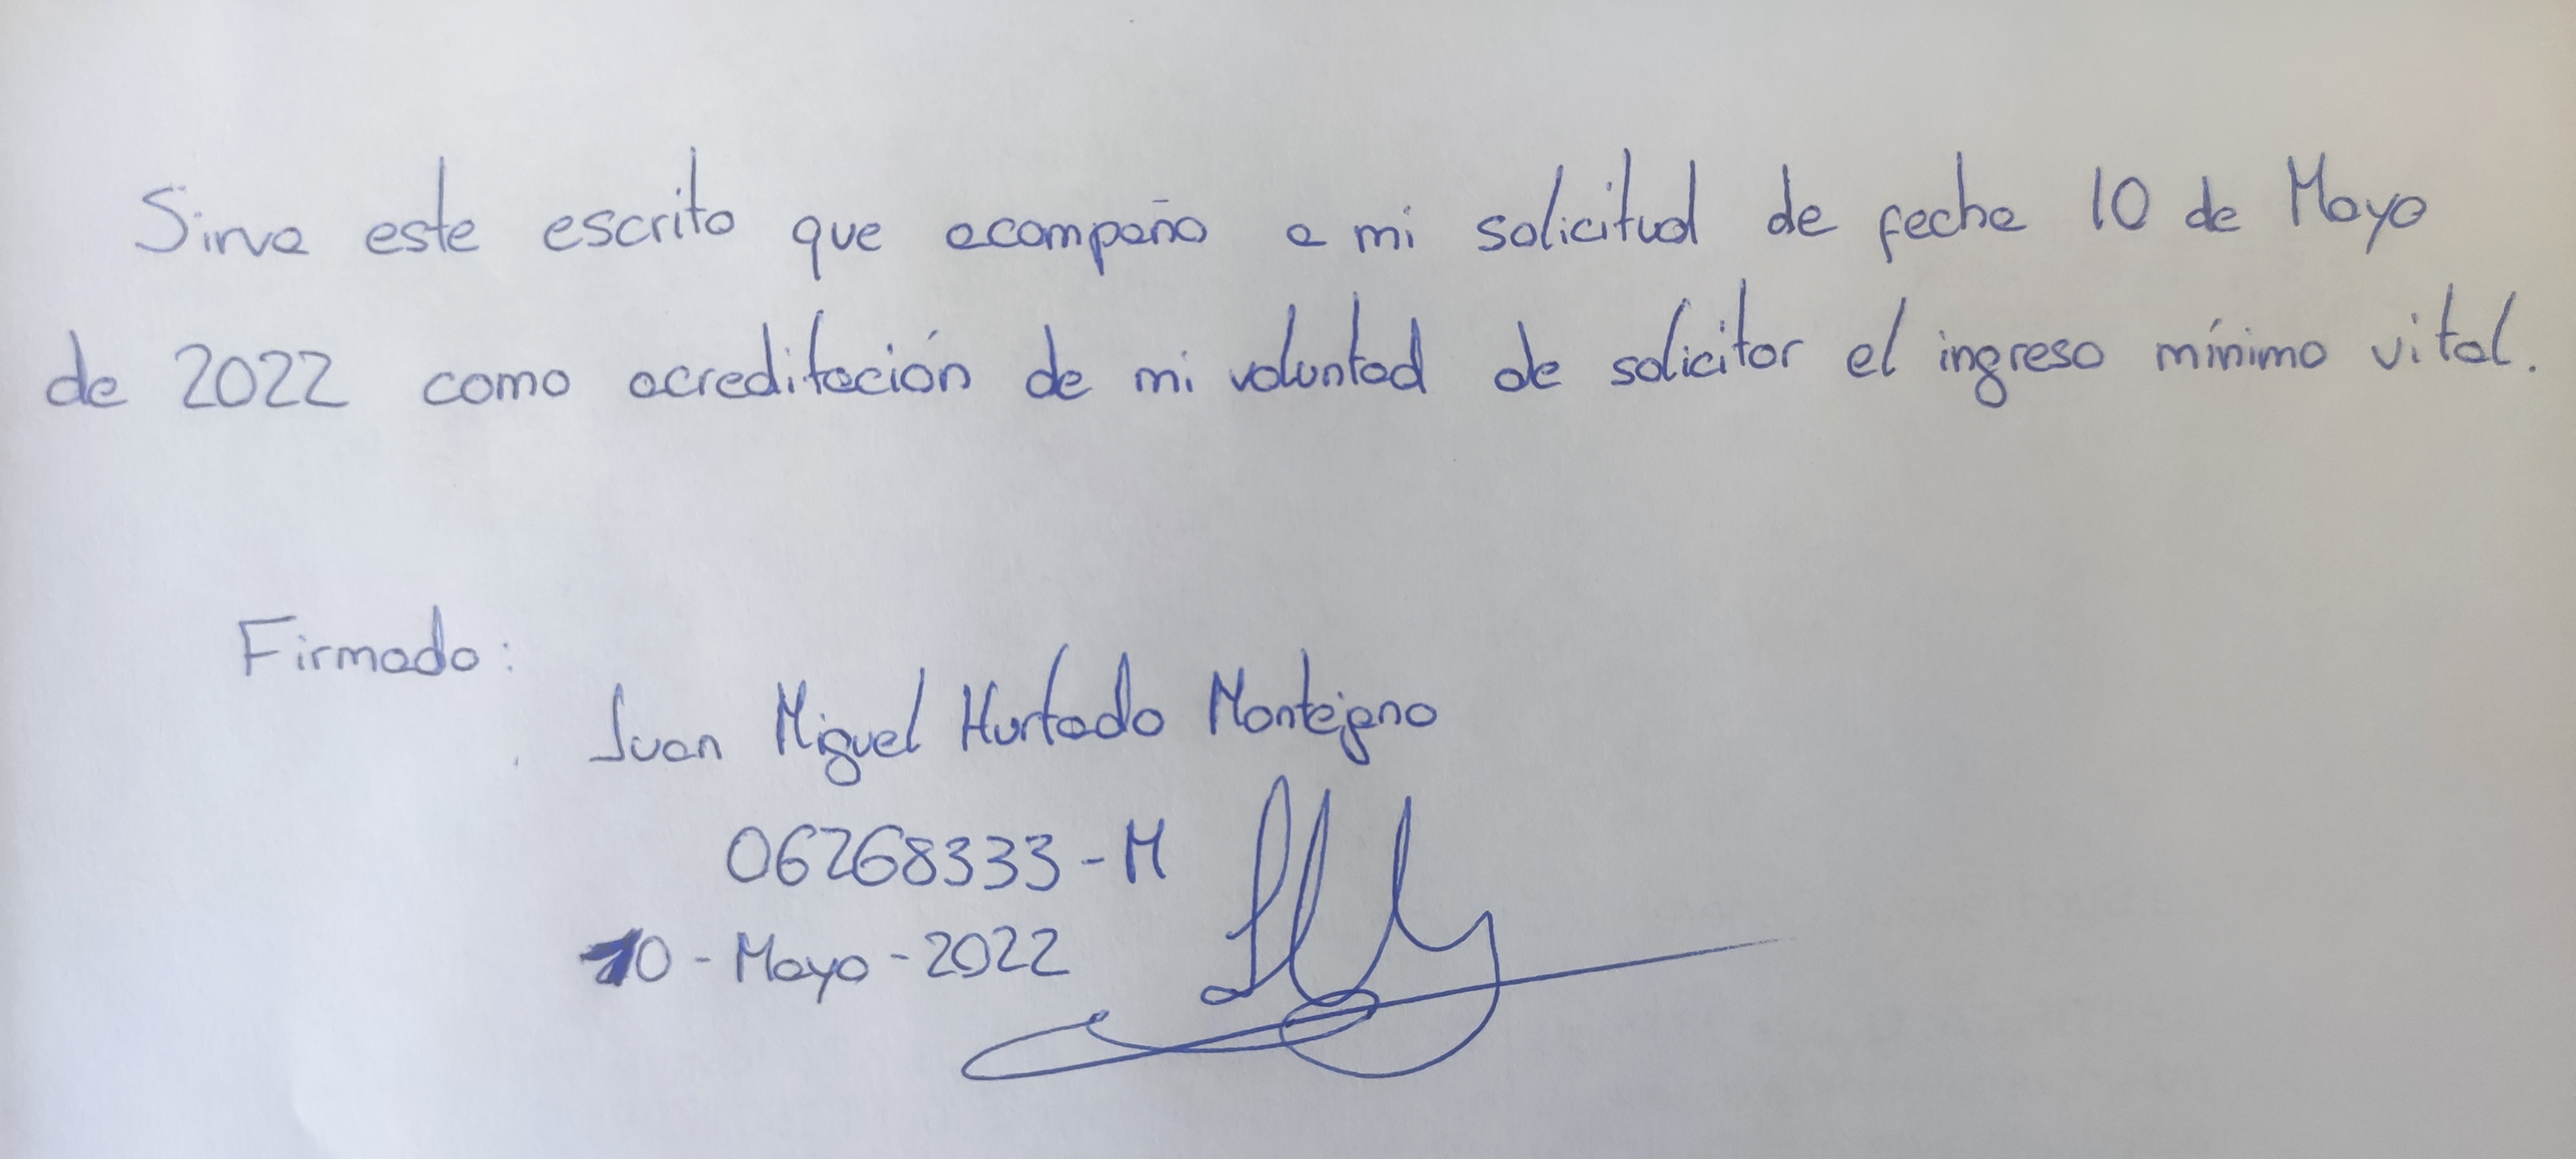 Sirva este escrito que acompaño a mi solicitud de fecha 10 de Mayo
de 2022 como acreditación de mi voluntad de solicitar el ingreso mínimo vital.
Firmado:
Juan Miguel Hurtado Montejano
06268333-M
10-Mayo-2022